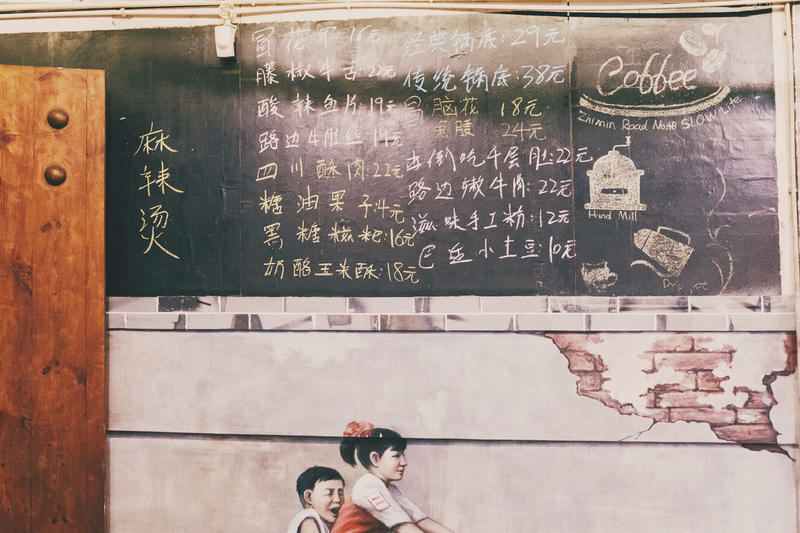 麻
辣
烫
冒花甲:16元
藤椒牛舌22元
酸辣鱼片:19元
路边牛肚丝:19元
四川酥肉:22元
糖油果子:4元
黑糖糍粑:16元
奶酪玉米酥:18元
经典锅底:29元
传统锅底:38元
冒脑花 18元
宽腰 24元
倒吃千层肚:22元
路边嫩牛肉:22元
滋味手工粉:12元
巴适小土豆:10元
Coffee
Zhimin Road No.48 SLOW Life
Hand Mill